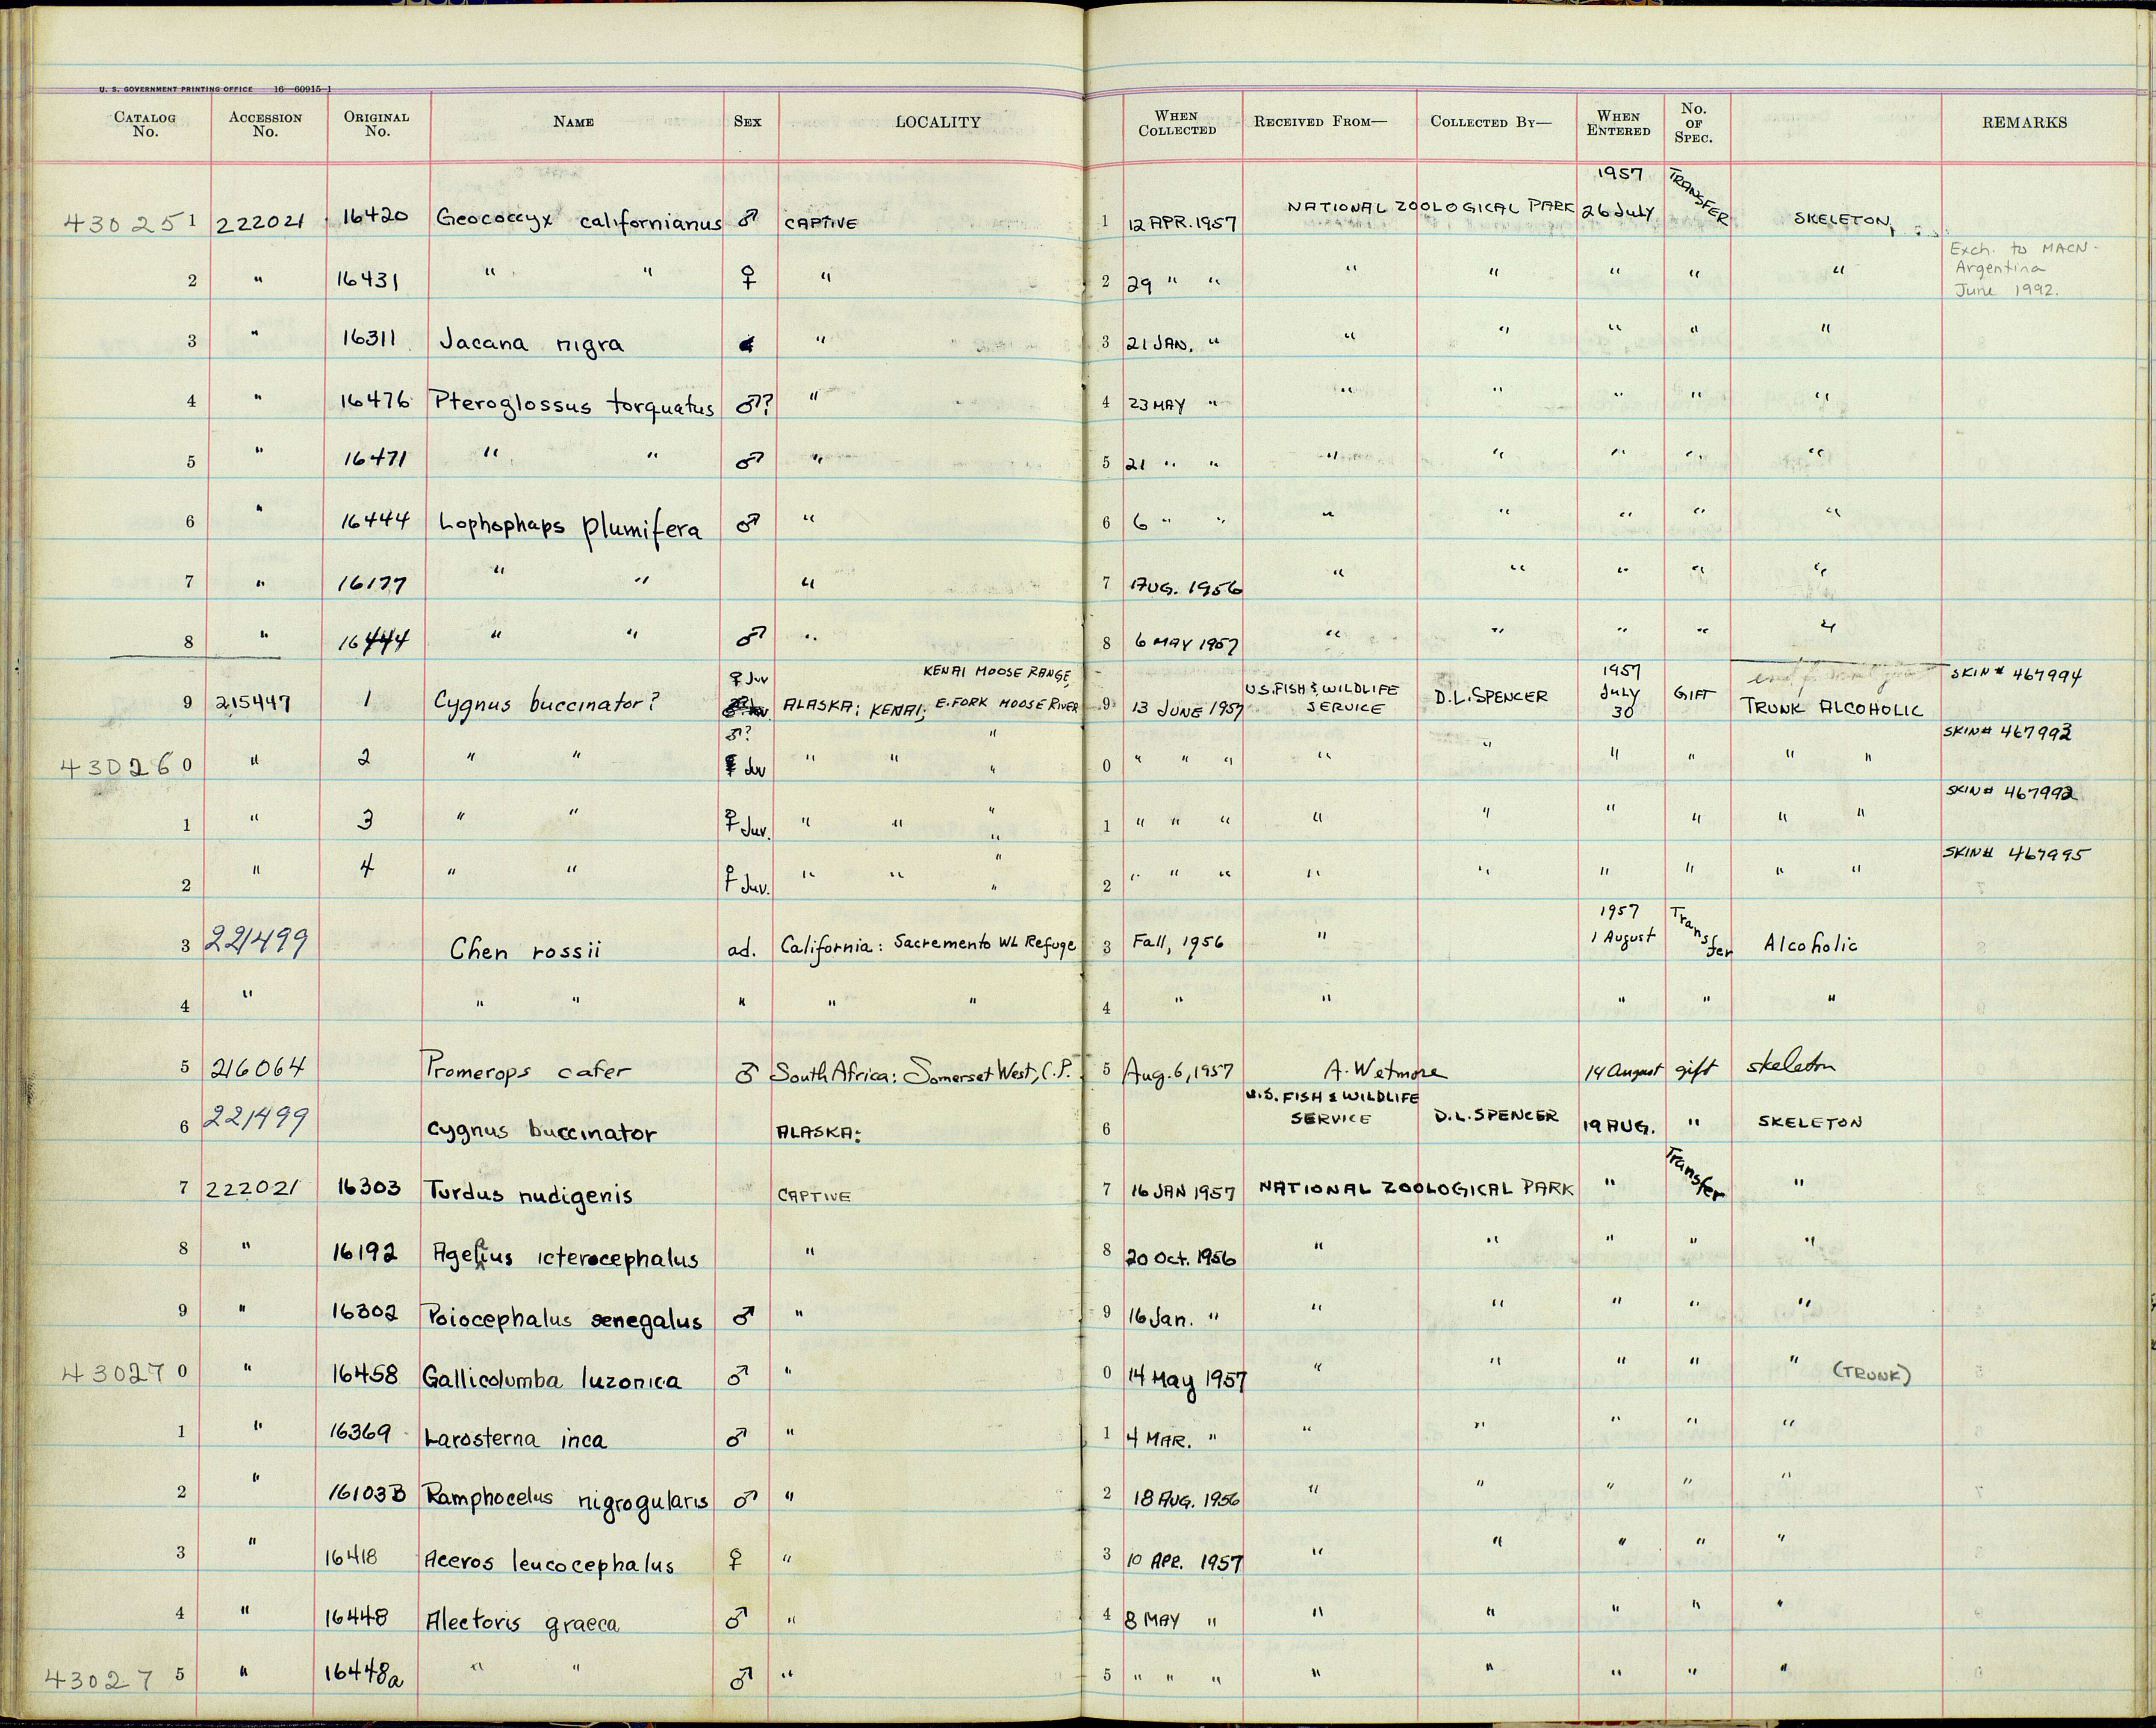 U. S. GOVERNMENT PRINTING OFFICE 16—60915-1
CATALOG No. ACCESSION No. ORIGINAL No. NAME SEX LOCALITY WHEN COLLECTED RECEIVED FROM— COLLECTED BY— WHEN ENTERED No. OF SPEC. REMARKS
430251 222021 16420 Geococcyx californianus ♂ CAPTIVE 1 12 APR. 1957 NATIONAL ZOOLOGICAL PARK 1957 26 July TRANSFER SKELETON
2 " 16431 " " ♀ " 2 29 " " " " " " " Exch. to MACN- Argentina June 1992.
3 " 16311 Jacana nigra " 3 21 JAN. " " " " " "
4 " 16476 Pteroglossus torquatus ♂? " 4 23 MAY " " " " " "
5 " 16471 " " ♂ " 5 21 " " " " " " "
6 " 16444 Lophophaps plumifera ♂ " 6 6 " " " " " " "
7 " 16177 " " " 7 AUG. 1956 " " " " "
8 " 16444 " " ♂ " 8 6 MAY 1957 " " " " "
9 215447 1 Cygnus buccinator? ♀ Juv ALASKA; KENAI; KENAI MOOSE RANGE, E. FORK MOOSE RIVER 9 13 JUNE 1957 U.S. FISH & WILDLIFE SERVICE D.L. SPENCER 1957 July 30 GIFT TRUNK ALCOHOLIC SKIN # 467994
430260 " 2 " " ♂? Juv " " " " 0 " " " " " " " " " SKIN # 467993
1 " 3 " " ♀ Juv. " " " " 1 " " " " " " " " " SKIN # 467992
2 " 4 " " ♀ Juv. " " " " 2 " " " " " " " " " SKIN # 467995
3 221499 Chen rossii ad. California: Sacremento WL Refuge 3 Fall, 1956 " 1957 1 August Transfer Alcoholic
4 " " " " " " 4 " " " " "
5 216064 Promerops cafer ♂ South Africa: Somerset West, C.P. 5 Aug. 6, 1957 A. Wetmore 14 August gift skeleton
6 221499 Cygnus buccinator ALASKA: 6 U.S. FISH & WILDLIFE SERVICE D.L. SPENCER 19 AUG. " SKELETON
7 222021 16303 Turdus nudigenis CAPTIVE 7 16 JAN 1957 NATIONAL ZOOLOGICAL PARK " Transfer "
8 " 16192 icterocephalus " 8 20 Oct. 1956 " " " " "
9 " 16302 Poiocephalus senegalus ♂ " 9 16 Jan. " " " " " "
430270 " 16458 Gallicolumba luzonica ♂ " 0 14 May 1957 " " " " " (TRUNK)
1 " 16369 Larosterna inca ♂ " 1 4 MAR. " " " " " "
2 " 16103B Ramphocelus nigrogularis ♂ " 2 18 AUG. 1956 " " " " "
3 " 16418 Aceros leucocephalus ♀ " 3 10 APR. 1957 " " " " "
4 " 16448 Alectoris graeca ♂ " 4 8 MAY " " " " " "
430275 " 16448a " " ♂ " 5 " " " " " " " "